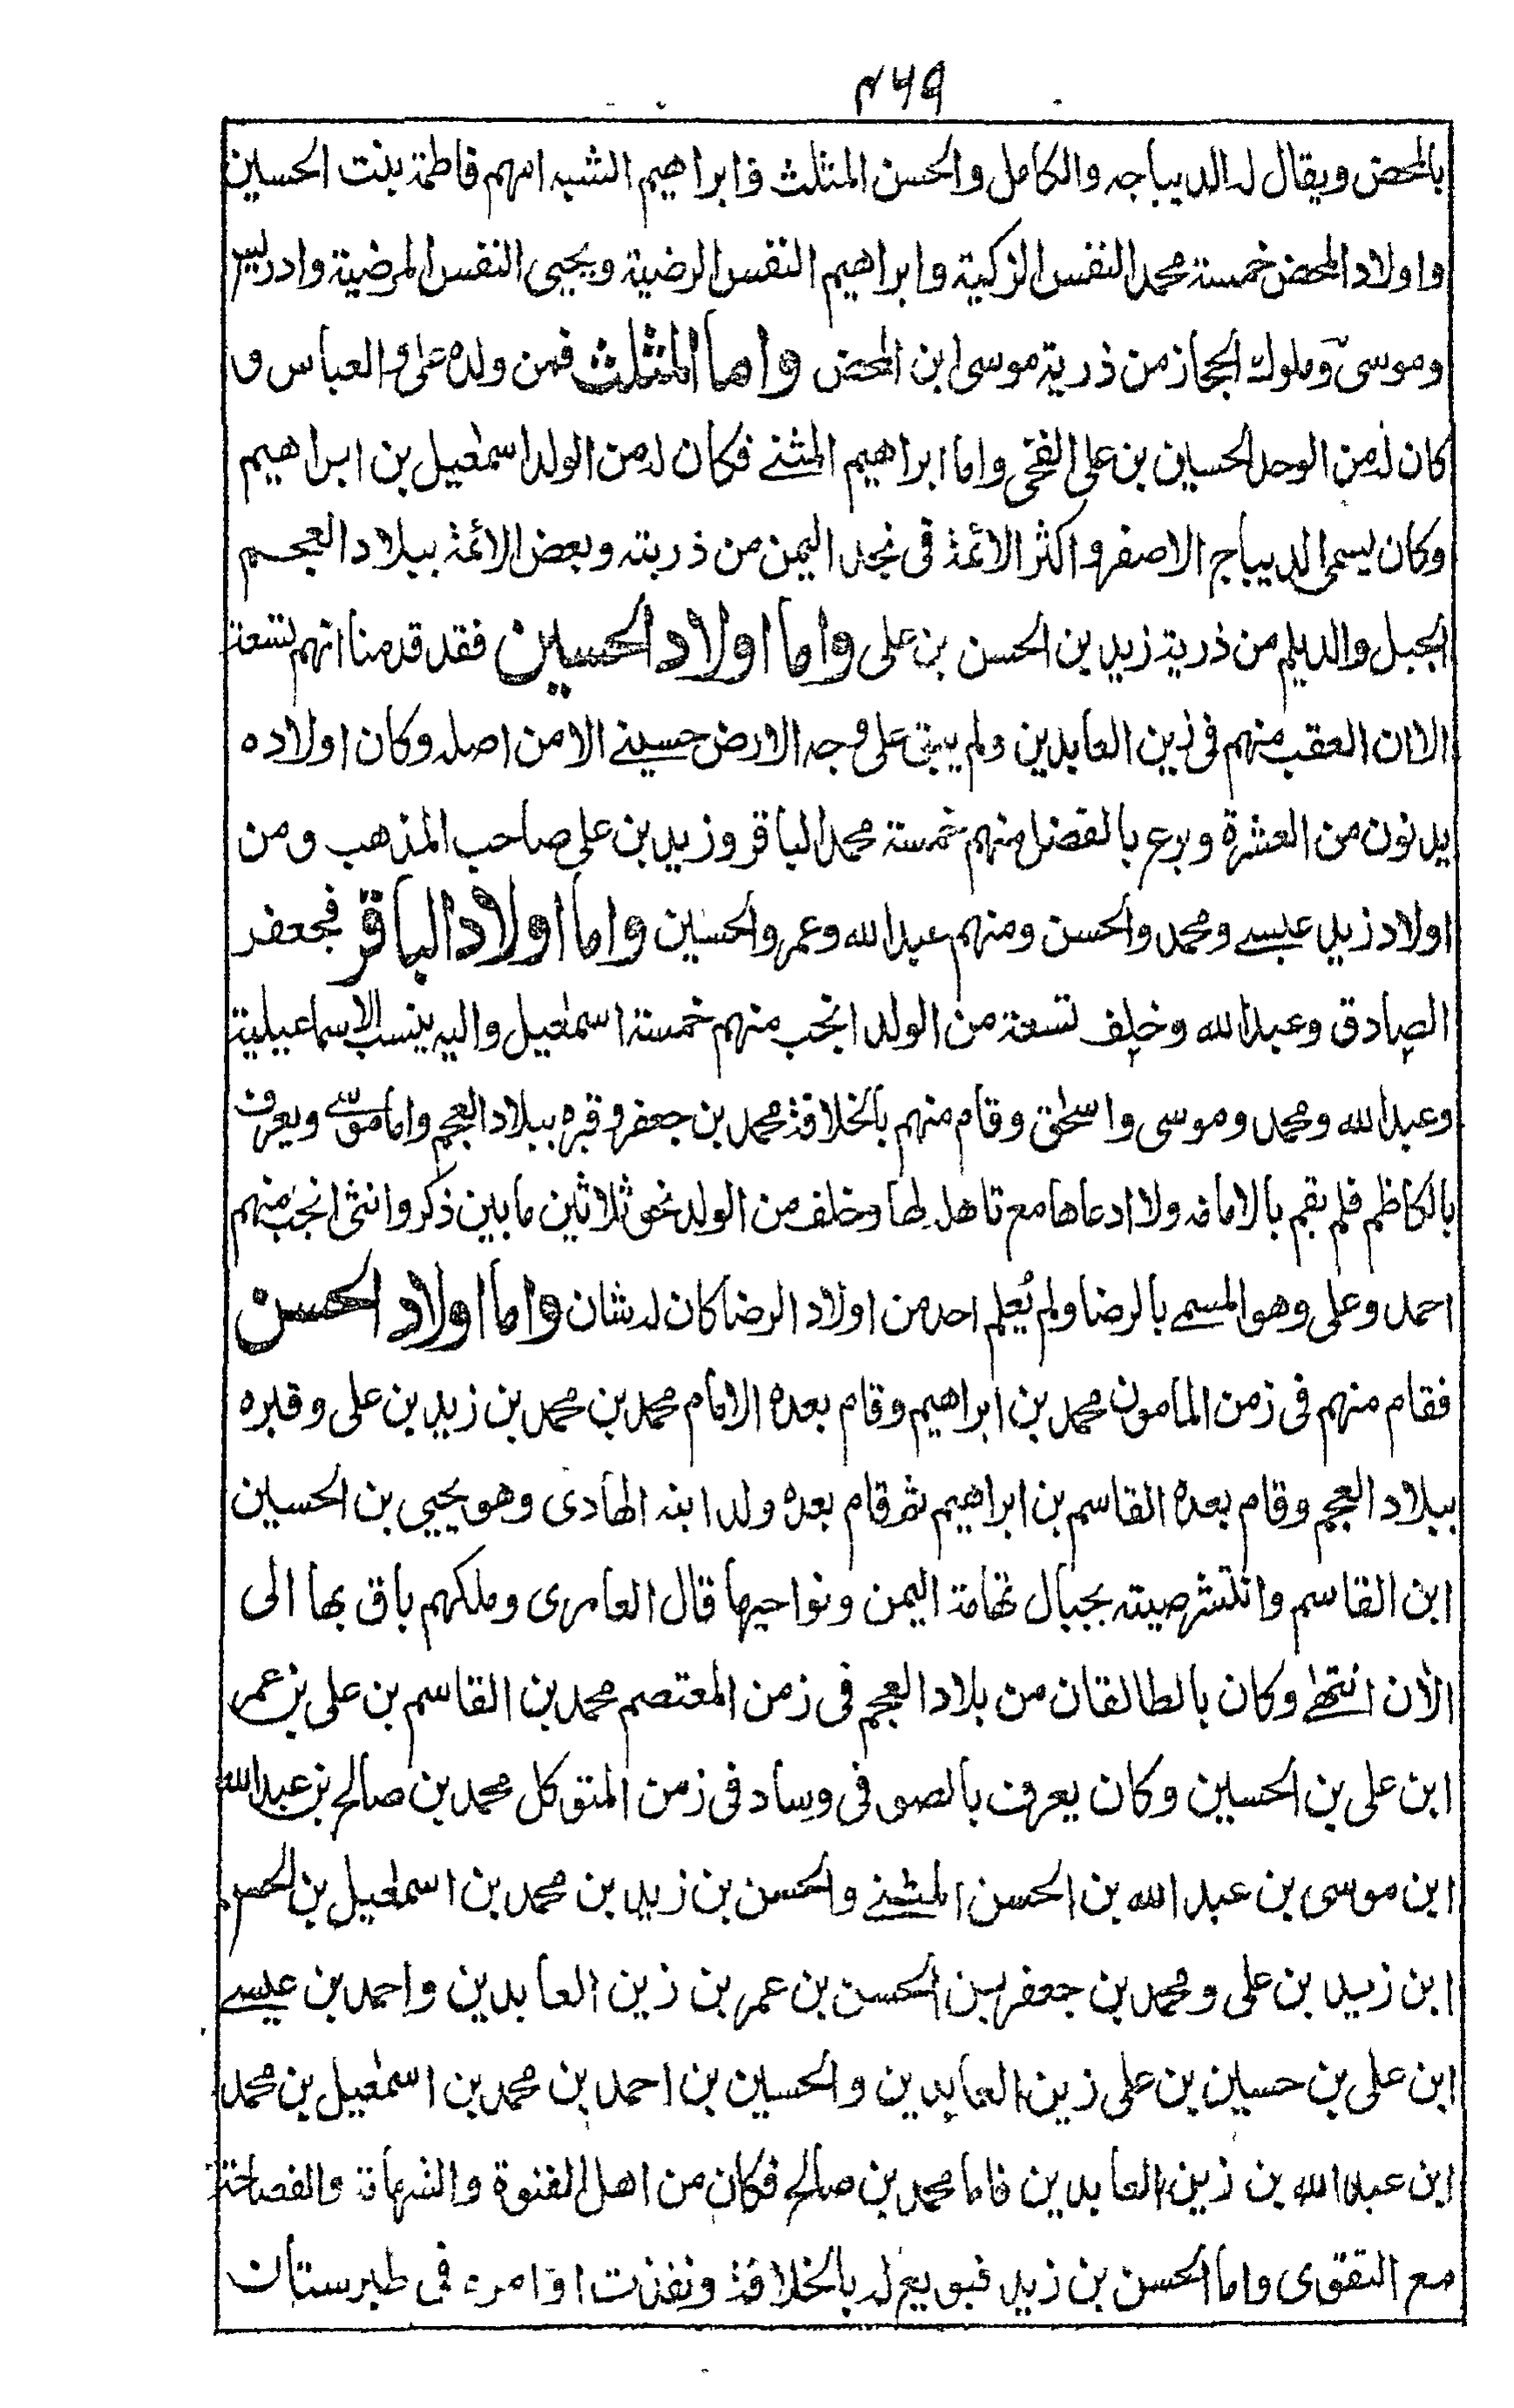 ۴۶۹
بالمحض ويقال له الديباجه والكامل والحسن المثلث وابراهيم الشبه امهم فاطمة بنت الحسين
واولاد المحض خمسة محمد النفس الزكية وابراهيم النفس الرضية ويحيى النفس المرضية وادريس
وموسى وملوك الحجاز من ذرية موسى ابن المحض واما المثلث فمن ولده على والعباس و
كان له من الوحد الحسين بن على الفخى واما ابراهيم المثنے فكان له من الولد اسمٰعيل بن ابراهيم
وكان يسمى الديباج الاصفر واكثر الائمة فى نجد اليمن من ذريته وبعض الائمة ببلاد العجم
الجبل والديلم من ذرية زيد بن الحسن بن على واما اولاد الحسين فقد قدمنا انهم تسعة
الا ان العقب منهم فى زين العابدين ولم يبق على وجه الارض حسينے الا من اصله وكان اولاده
يدنون من العشرة وبرع بالفضل منهم خمسة محمد الباقر وزيد بن على صاحب المذهب ومن
اولاد زيد عيسے ومحمد والحسن ومنهم عبد الله وعمر والحسين واما اولاد الباقر فجعفر
الصادق وعبد الله وخلف تسعة من الولد انجب منهم خمسة اسمٰعيل واليه ينسب الاسماعيلية
وعبد الله ومحمد وموسى واسحٰق وقام منهم بالخلافة محمد بن جعفر وقبره ببلاد العجم واما موسے ويعرف
بالكاظم فلم يقم بالامامه ولا ادعاها مع تاهله لها وخلف من الولد نحو ثلاثين ما بين ذكر وانثى انجب منهم
احمد وعلى وهو المسمے بالرضا ولم يُعلم احد من اولاد الرضا كان له شان واما اولاد الحسن
فقام منهم فى زمن المامون محمد بن ابراهيم وقام بعده الامام محمد بن محمد بن زيد بن على وقبره
ببلاد العجم وقام بعده القاسم بن ابراهيم ثم قام بعده ولد ابنه الهادى وهو يحيى بن الحسين
ابن القاسم وانتشر صيته بجبال تهامة اليمن ونواحيها قال العامرى وملكهم باق بها الى
الأن انتهٰے وكان بالطالقان من بلاد العجم فى زمن المعتصم محمد بن القاسم بن على بن عمر
ابن على بن الحسين وكان يعرف بالصوفى وساد فى زمن المتوكل محمد بن صالح بن عبد الله
ابن موسى بن عبد الله بن الحسن المثنے والحسن بن زيد بن محمد بن اسمٰعيل بن الحسن
ابن زيد بن على ومحمد بن جعفر بن الحسن بن عمر بن زين العابدين واحمد بن عيسے
ابن على بن حسين بن على زين العابدين والحسين بن احمد بن محمد بن اسمٰعيل بن محمد
ابن عبد الله بن زين العابدين فاما محمد بن صالح فكان من اهل الفتوة والشهامة والفصاحة
مع التقوى واما الحسن بن زيد فبويع له بالخلافة ونفذت اوامره فى طبرستان